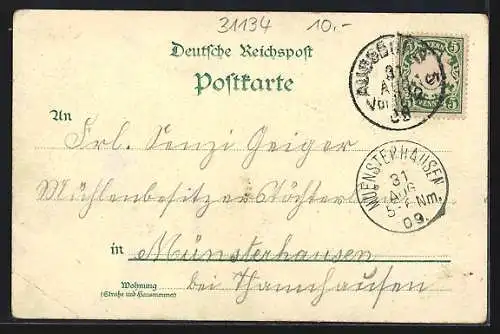 31134 10.-
Deutsche Reichspost
Postkarte
An
Frl. Senzi Geiger
Mühlenbesitzers Töchterlein
in Münsterhausen
bei Thannhausen
Wohnung
(Straße und Hausnummer)
AUGSBURG
31
AUG
Vor
09
5 5
MUENSTERHAUSEN
31
AUG
5-6 Nm.
09.